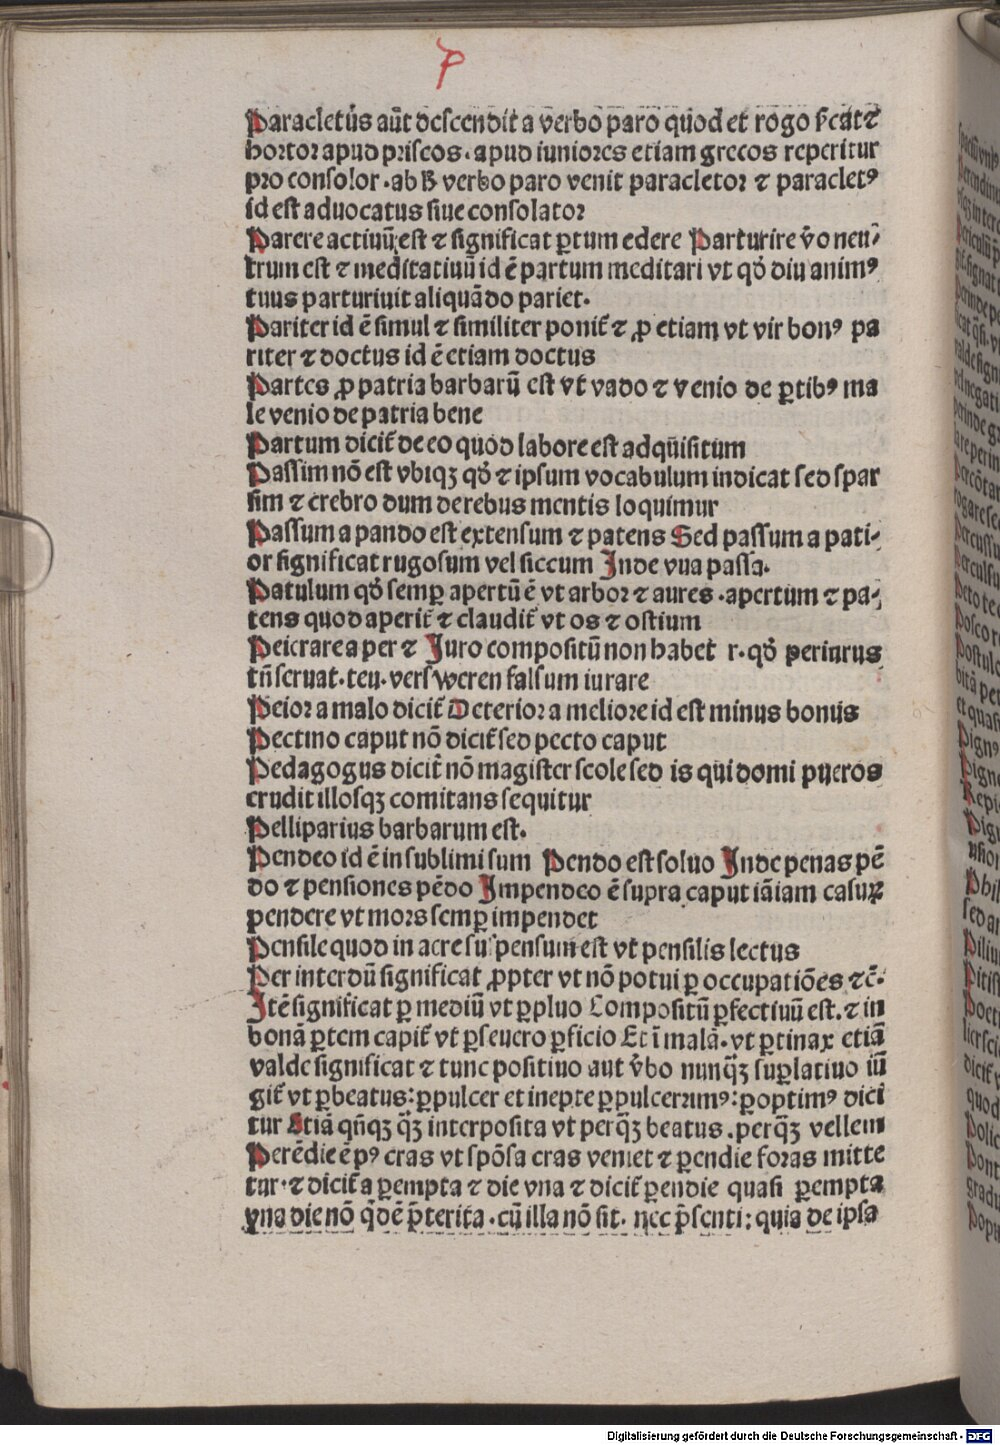 P
Paracletus aūt descendit a verbo paro quod et rogo sĉat ⁊
hortor apud priscos. apud iuniores etiam grecos reperitur
pro consolor. ab ß verbo paro venit paracletor ⁊ paracletꝰ
id est aduocatus siue consolator
Parere actiuū est ⁊ significat ꝑtum edere Parturire v̄o neu⸗
trum est ⁊ meditatiuū id ē partum meditari vt qd̓ diu animꝰ
tuus parturiuit aliquādo pariet.
Pariter id ē simul ⁊ similiter ponit̄ ⁊ ꝓ etiam vt vir bonꝰ pa
riter ⁊ doctus id ē etiam doctus
Partes ꝓ patria barbarū est vt̄ vado ⁊ venio de ꝑtibꝰ ma
le venio de patria bene
Partum dicit̄ de eo quod labore est adquisitum
Passim nō est vbiqꝫ qd̓ ⁊ ipsum vocabulum indicat sed spar
sim ⁊ crebro dum de rebus mentis loquimur
Passum a pando est extensum ⁊ patens Sed passum a pati⸗
or significat rugosum vel siccum Inde vua passa.
Patulum qd̓ semꝑ apertū ē vt arbor ⁊ aures. apertum ⁊ pa⸗
tens quod aperit̄ ⁊ claudit̄ vt os ⁊ ostium
Peierare a per ⁊ Juro compositū non habet r. qd̓ periurus
tn̄ seruat. teu. versweren falsum iurare
Peior a malo dicit̄ Deterior a meliore id est minus bonus
Pectino caput nō dicit̄ sed pecto caput
Pedagogus dicit̄ nō magister scole sed is qui domi pueros
erudit illosqꝫ comitans sequitur
Pelliparius barbarum est.
Pendeo id ē in sublimi sum Pendo est soluo Inde penas pē
do ⁊ pensiones pēdo Impendeo ē supra caput iāiam casuꝝ
pendere vt mors semꝑ impendet
Pensile quod in aere suspensum est vt̄ pensilis lectus
Per interdū significat ꝓpter vt nō potui ꝑ occupatiōes ⁊c̄.
Itē significat ꝑ mediū vt ꝑpluo Compositū ꝑfectiuū est. ⁊ in
bonā ꝑtem capit̄ vt̄ ꝑseuero ꝑficio Et ī malā. vt ꝑtinax etiā
valde significat ⁊ tunc positiuo aut v̄bo nunqꝫ suꝑlatiuo iū
git̄ vt ꝑbeatus: ꝑpulcer et inepte ꝑpulcerimꝰ: ꝑoptimꝰ dici
tur Etiā qn̄qꝫ qꝫ interposita vt perqꝫ beatus. perqꝫ vellem
Perēdie ē pꝰ cras vt spōsa cras veniet ⁊ ꝑendie foras mitte
tur. ⁊ dicit̄ a ꝑempta ⁊ die vna ⁊ dicit̄ ꝑendie quasi ꝑempta
vna die nō qdē p̄terita. cū illa nō sit. nec p̄senti: quia de ipsa
Digitalisierung gefördert durch die Deutsche Forschungsgemeinschaft - DFG